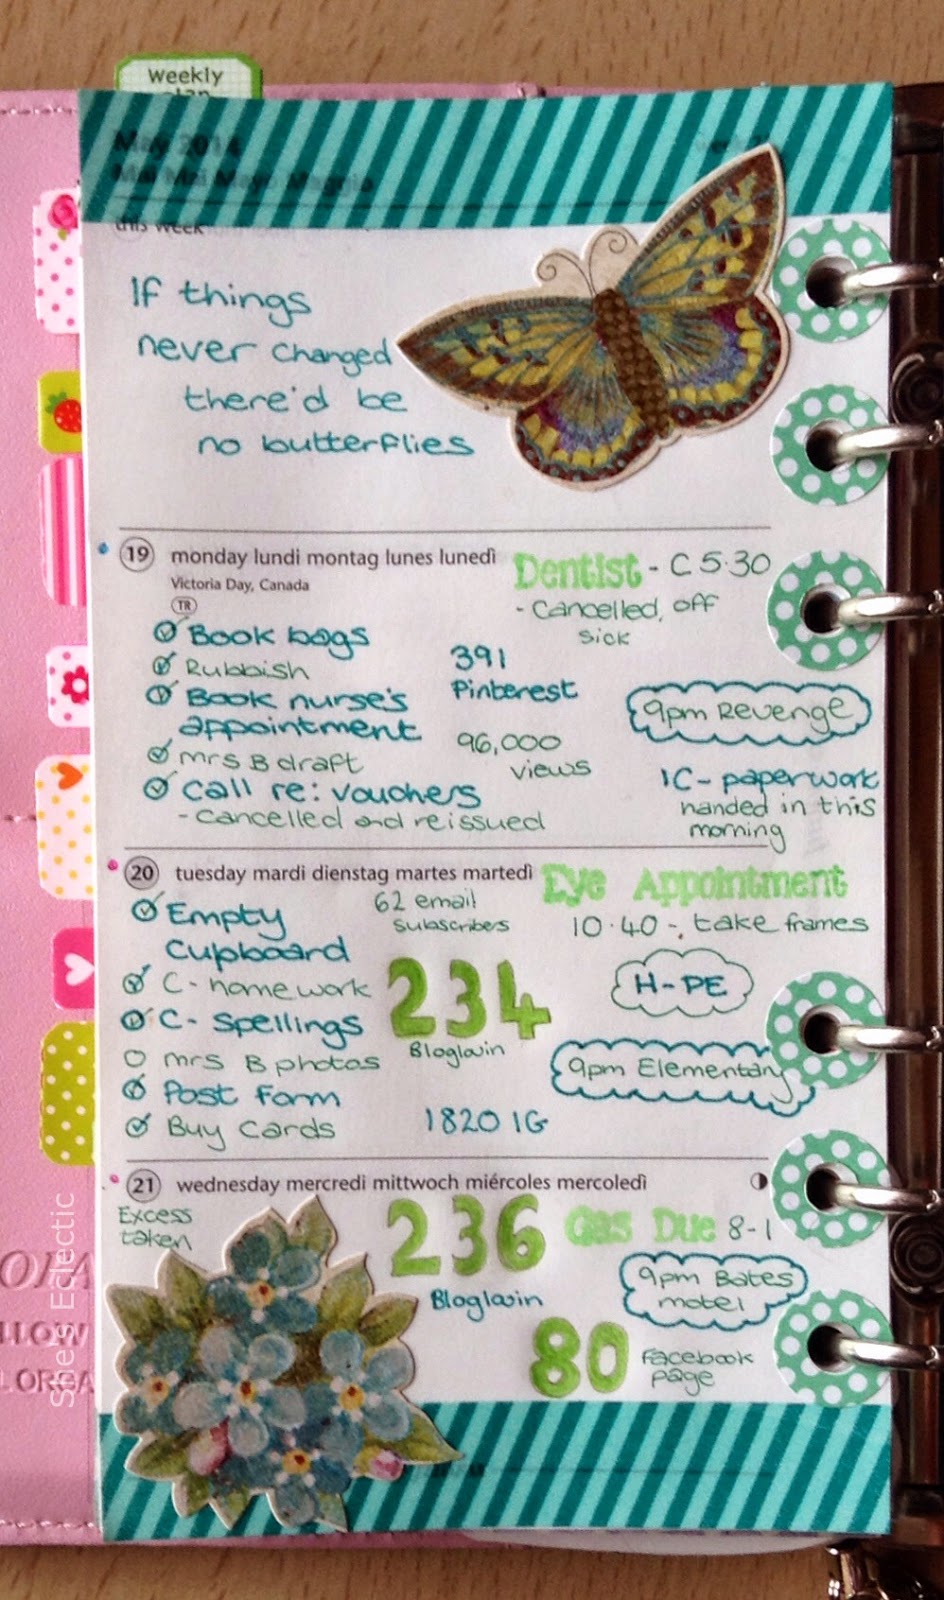 weekly
plan
May 2014
Mai Mai Mayo Maggio
this week
If things
never changed
there'd be
no butterflies
19 monday lundi montag lunes lunedì
Victoria Day, Canada
TR
Dentist - C 5.30
- Cancelled, off
sick
Book bags
Rubbish
Book nurse's
appointment
mrs B draft
Call re: vouchers
- Cancelled and reissued
391
Pinterest
96,000
views
9pm Revenge
1C- paperwork
handed in this
morning
20 tuesday mardi dienstag martes martedì
Eye Appointment
10.40 - take frames
Empty
Cupboard
C - homework
C - Spellings
mrs B photos
Post Form
Buy Cards
62 email
subscribers
234
Bloglovin
1820 IG
H-PE
9pm Elementary
21 wednesday mercredi mittwoch miércoles mercoledì
Excess
taken
236
Bloglovin
Gas Due 8-1
9pm Bates
motel
80
Facebook
page
She's Eclectic